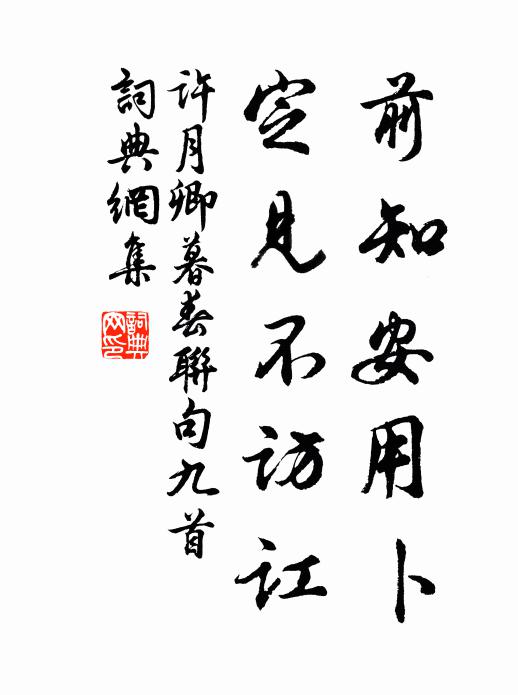 前知安用卜
定見不訪訌
許月卿暮春聯句九首
詞典網集
詞典網印